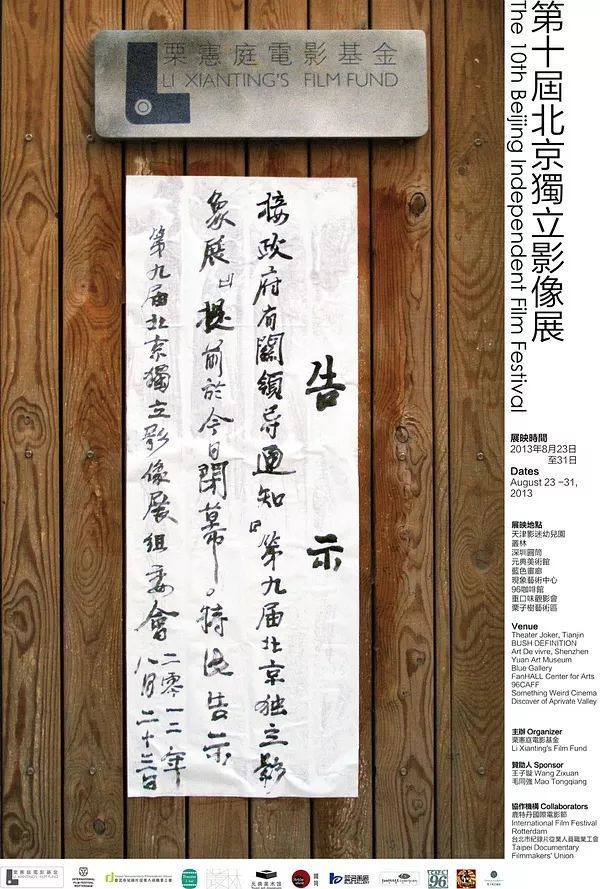 栗憲庭電影基金
LI XIANTING'S FILM FUND
告示
接政府有關領导通知『第九届北京独立影
象展』提前於今日閉幕。特此告示
第九届北京獨立影像展組委會 二零一二年
八月二十三日
第十屆北京獨立影像展
The 10th Beijing Independent Film Festival
展映時間
2013年8月23日
至31日
Dates
August 23 –31,
2013
展映地點
天津影迷幼兒園
叢林
深圳圓筒
元典美術館
藍色畫廊
現象藝術中心
96咖啡館
重口味觀影會
栗子樹藝術區
Venue
Theater Joker, Tianjin
BUSH DEFINITION
Art De vivre, Shenzhen
Yuan Art Museum
Blue Gallery
FanHALL Center for Arts
96CAFF
Something Weird Cinema
Discover of Aprivate Valley
主辦 Organizer
栗憲庭電影基金
Li Xianting's Film Fund
贊助人 Sponsor
王子璇 Wang Zixuan
毛同強 Mao Tongqiang
協作機構 Collaborators
鹿特丹國際電影節
International Film Festival
Rotterdam
台北市紀錄片從業人員職業工會
Taipei Documentary
Filmmakers' Union
栗憲庭電影基金
LI XIANTING'S FILM FUND
INTERNATIONAL
FILM FESTIVAL
ROTTERDAM
元典美术馆
96